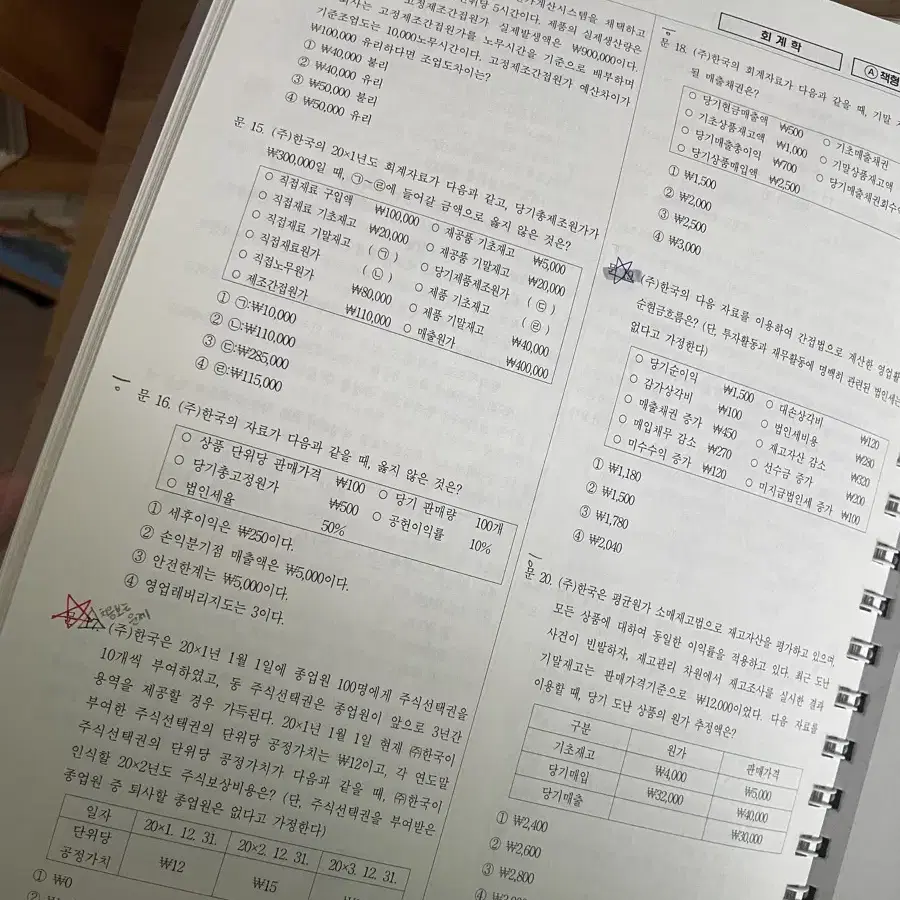 위당 5시간이다. 제품의 실제생산량은
고정제조간접원가 실제발생액은 ₩900,000이다.
회사는 고정제조간접원가를 노무시간을 기준으로 배부하며
기준조업도는 10,000노무시간이다. 고정제조간접원가 예산차이가
₩100,000 유리하다면 조업도차이는?
① ₩40,000 불리
② ₩40,000 유리
③ ₩50,000 불리
④ ₩50,000 유리
문 15. (주)한국의 20×1년도 회계자료가 다음과 같고, 당기총제조원가가
₩300,000일 때, ㉠~㉣에 들어갈 금액으로 옳지 않은 것은?
○ 직접재료 구입액 ₩100,000 ○ 재공품 기초재고 ₩5,000
○ 직접재료 기초재고 ₩20,000 ○ 재공품 기말재고 ₩20,000
○ 직접재료 기말재고 ( ㉠ ) ○ 당기제품제조원가 ( ㉢ )
○ 직접재료원가 ( ㉡ ) ○ 제품 기초재고 ( ㉣ )
○ 직접노무원가 ₩80,000 ○ 제품 기말재고 ₩40,000
○ 제조간접원가 ₩110,000 ○ 매출원가 ₩400,000
① ㉠:₩10,000
② ㉡:₩110,000
③ ㉢:₩285,000
④ ㉣:₩115,000
문 16. (주)한국의 자료가 다음과 같을 때, 옳지 않은 것은?
○ 상품 단위당 판매가격 ₩100 ○ 당기 판매량 100개
○ 당기총고정원가 ₩500 ○ 공헌이익률 10%
○ 법인세율 50%
① 세후이익은 ₩250이다.
② 손익분기점 매출액은 ₩5,000이다.
③ 안전한계는 ₩5,000이다.
④ 영업레버리지도는 3이다.
17. (주)한국은 20×1년 1월 1일에 종업원 100명에게 주식선택권을
10개씩 부여하였고, 동 주식선택권은 종업원이 앞으로 3년간
용역을 제공할 경우 가득된다. 20×1년 1월 1일 현재 ㈜한국이
부여한 주식선택권의 단위당 공정가치는 ₩12이고, 각 연도말
주식선택권의 단위당 공정가치가 다음과 같을 때, ㈜한국이
인식할 20×2년도 주식보상비용은? (단, 주식선택권을 부여받은
종업원 중 퇴사할 종업원은 없다고 가정한다)
일자 20×1. 12. 31. 20×2. 12. 31. 20×3. 12. 31.
단위당 공정가치 ₩12 ₩15
① ₩0
②
회 계 학
Ⓐ 책형
문 18. (주)한국의 회계자료가 다음과 같을 때, 기말
될 매출채권은?
○ 당기현금매출액 ₩500 ○ 기초매출채권
○ 기초상품재고액 ₩1,000 ○ 기말상품재고액
○ 당기매출총이익 ₩700 ○ 당기매출채권회수
○ 당기상품매입액 ₩2,500
① ₩1,500
② ₩2,000
③ ₩2,500
④ ₩3,000
(주)한국의 다음 자료를 이용하여 간접법으로 계산한 영업활
순현금흐름은? (단, 투자활동과 재무활동에 명백히 관련된 법인세는
없다고 가정한다)
○ 당기순이익 ₩1,500 ○ 대손상각비 ₩120
○ 감가상각비 ₩100 ○ 법인세비용 ₩280
○ 매출채권 증가 ₩450 ○ 재고자산 감소 ₩320
○ 매입채무 감소 ₩270 ○ 선수금 증가 ₩200
○ 미수수익 증가 ₩120 ○ 미지급법인세 증가 ₩100
① ₩1,180
② ₩1,500
③ ₩1,780
④ ₩2,040
문 20. (주)한국은 평균원가 소매재고법으로 재고자산을 평가하고 있으며,
모든 상품에 대하여 동일한 이익률을 적용하고 있다. 최근 도난
사건이 빈발하자, 재고관리 차원에서 재고조사를 실시한 결과
기말재고는 판매가격기준으로 ₩12,000이었다. 다음 자료를
이용할 때, 당기 도난 상품의 원가 추정액은?
구분 원가 판매가격
기초재고 ₩4,000 ₩5,000
당기매입 ₩32,000 ₩40,000
당기매출 ₩30,000
① ₩2,400
② ₩2,600
③ ₩2,800
④